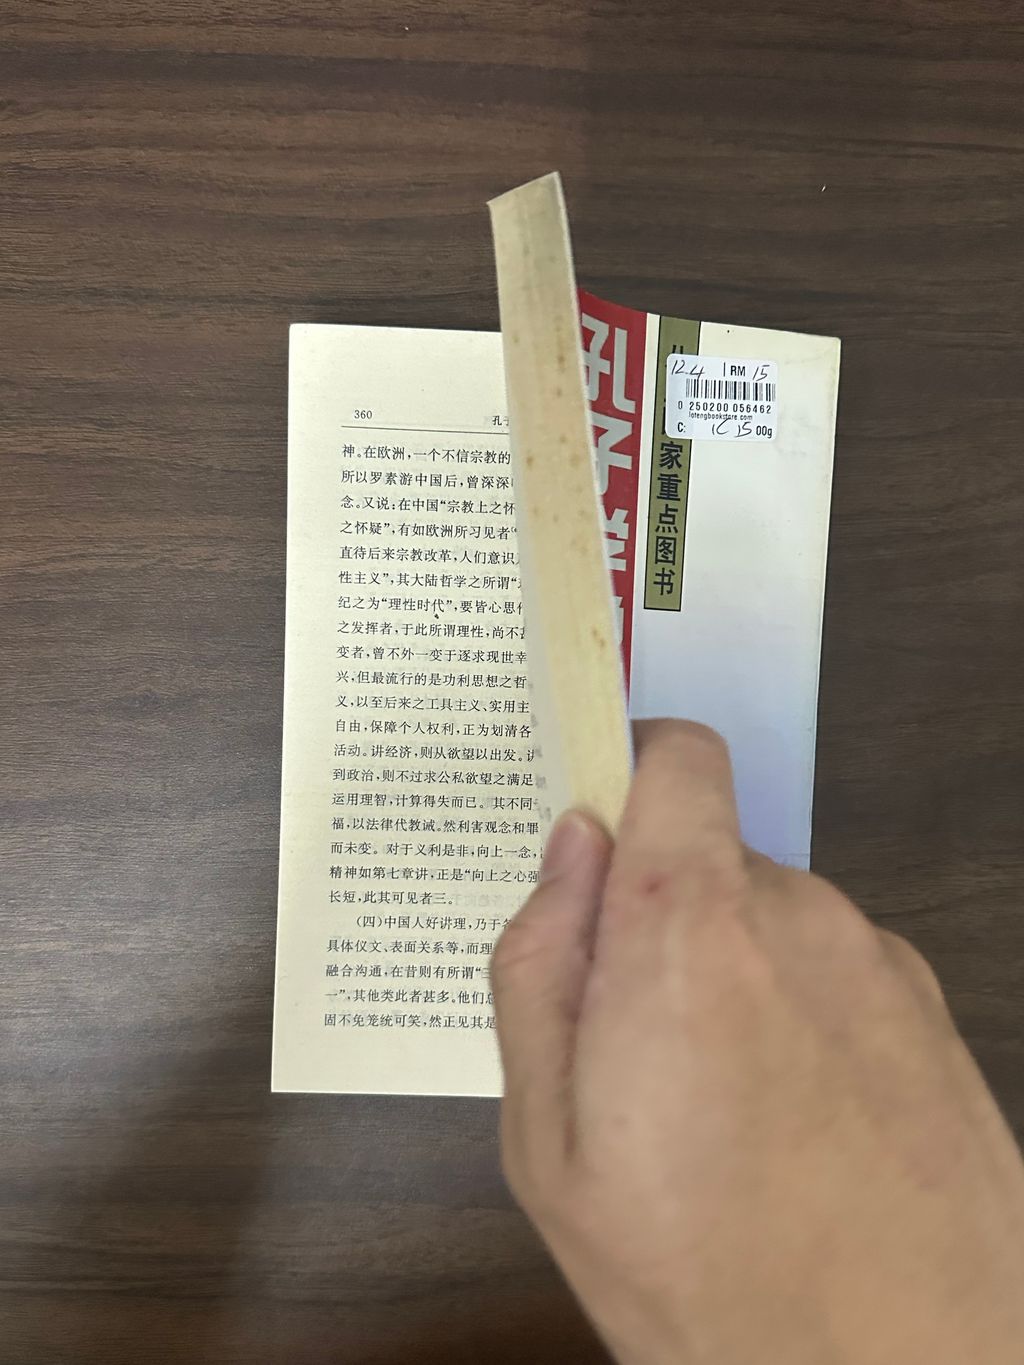 360
孔子
神。在欧洲，一个不信宗教的
所以罗素游中国后，曾深深
念。又说：在中国“宗教上之怀
之怀疑”，有如欧洲所习见者
直待后来宗教改革，人们意识
性主义”，其大陆哲学之所谓“
纪之为“理性时代”，要皆心思作
之发挥者，于此所谓理性，尚不
变者，曾不外一变于逐求现世幸
兴，但最流行的是功利思想之哲
义，以至后来之工具主义、实用主
自由，保障个人权利，正为划清各
活动。讲经济，则从欲望以出发。讲
到政治，则不过求公私欲望之满足
运用理智，计算得失而已。其不同
福，以法律代教诫。然利害观念和罪
而未变。对于义利是非，向上一念，
精神如第七章讲，正是“向上之心强
长短，此其可见者三。
（四）中国人好讲理，乃于各
具体仪文、表面关系等，而理
融合沟通，在昔则有所谓“三
一”，其他类此者甚多。他们总
固不免笼统可笑，然正见其是
孔子学
家重点图书
12.4 RM 15
0 250200 056462
lotengbookstore.com
C: 15 00g